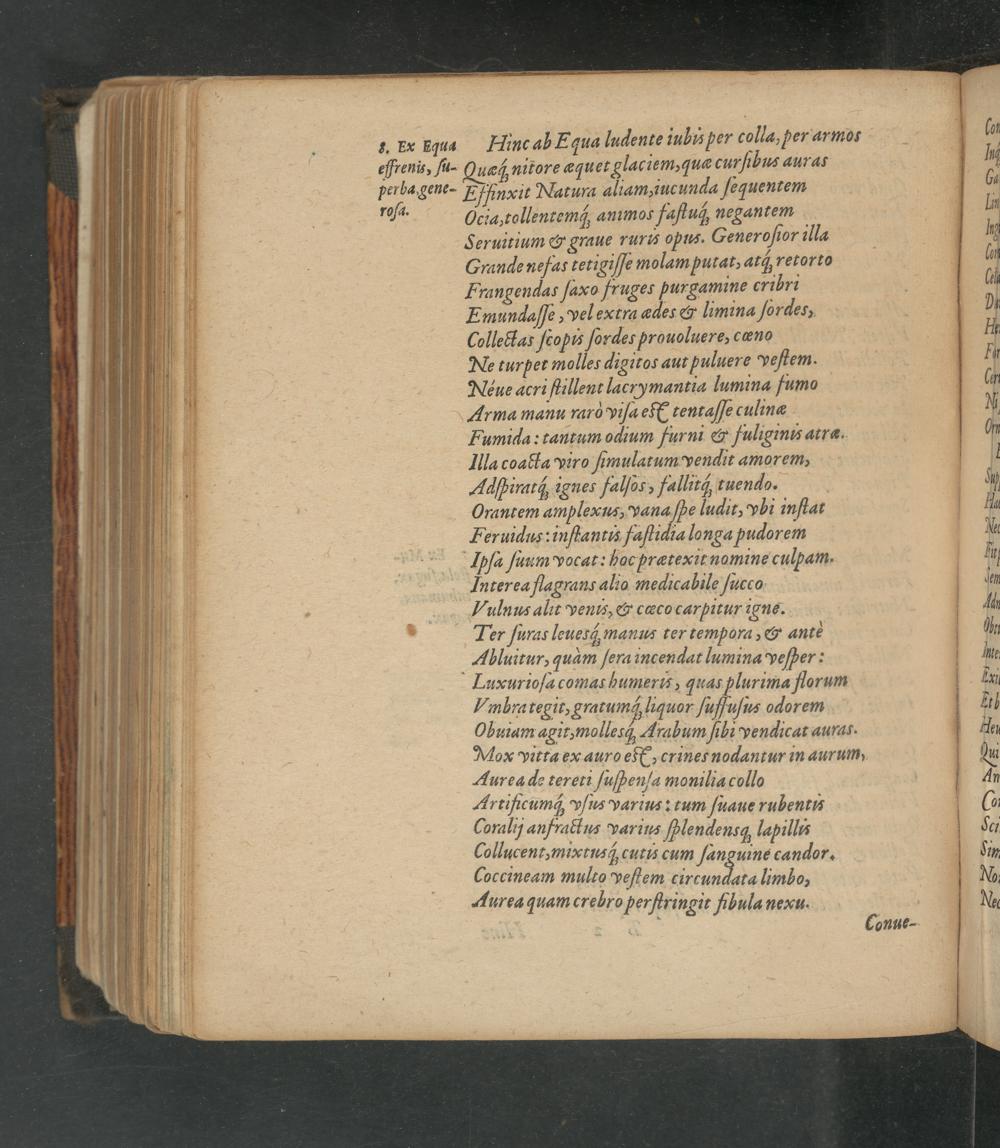 8. Ex Equa
effrenis, ſu-
perba, gene-
roſa.
Hinc ab Equa ludente iubis per colla, per armos
Quæq́; nitore æquet glaciem, quæ curſibus auras
Effinxit Natura aliam, iucunda ſequentem
Ocia, tollentemq́; animos faſtuq́; negantem
Seruitium & graue ruris opus. Generoſior illa
Grande nefas tetigiſſe molam putat, atq́; retorto
Frangendas ſaxo fruges purgamine cribri
Emundaſſe, vel extra ædes & limina ſordes,
Collectas ſcopis ſordes prouoluere, cœno
Ne turpet molles digitos aut puluere veſtem.
Néue acri ſtillent lacrymantia lumina fumo
Arma manu rarò viſa eſt tentaſſe culinæ
Fumida: tantum odium furni & fuliginis atræ.
Illa coacta viro ſimulatum vendit amorem,
Adſpiratq́; ignes falſos, fallitq́; tuendo.
Orantem amplexus, vana ſpe ludit, vbi inſtat
Feruidus: inſtantis faſtidia longa pudorem
Ipſa ſuum vocat: hoc prætexit nomine culpam.
Interea flagrans alio medicabile ſucco
Vulnus alit venis, & cæco carpitur igne.
Ter ſuras leuesq́; manus ter tempora, & antè
Abluitur, quàm ſera incendat lumina veſper:
Luxurioſa comas humeris, quas plurima florum
Vmbra tegit, gratumq́; liquor ſuffuſus odorem
Obuiam agit, mollesq́; Arabum ſibi vendicat auras.
Mox vitta ex auro eſt, crines nodantur in aurum,
Aurea de tereti ſuſpenſa monilia collo
Artificumq́; vſus varius: tum ſuaue rubentis
Coralij anfractus varius ſplendensq; lapillis
Collucent, mixtusq́; cutis cum ſanguine candor.
Coccineam multo veſtem circundata limbo,
Aurea quam crebro perſtringit fibula nexu.
Conue-